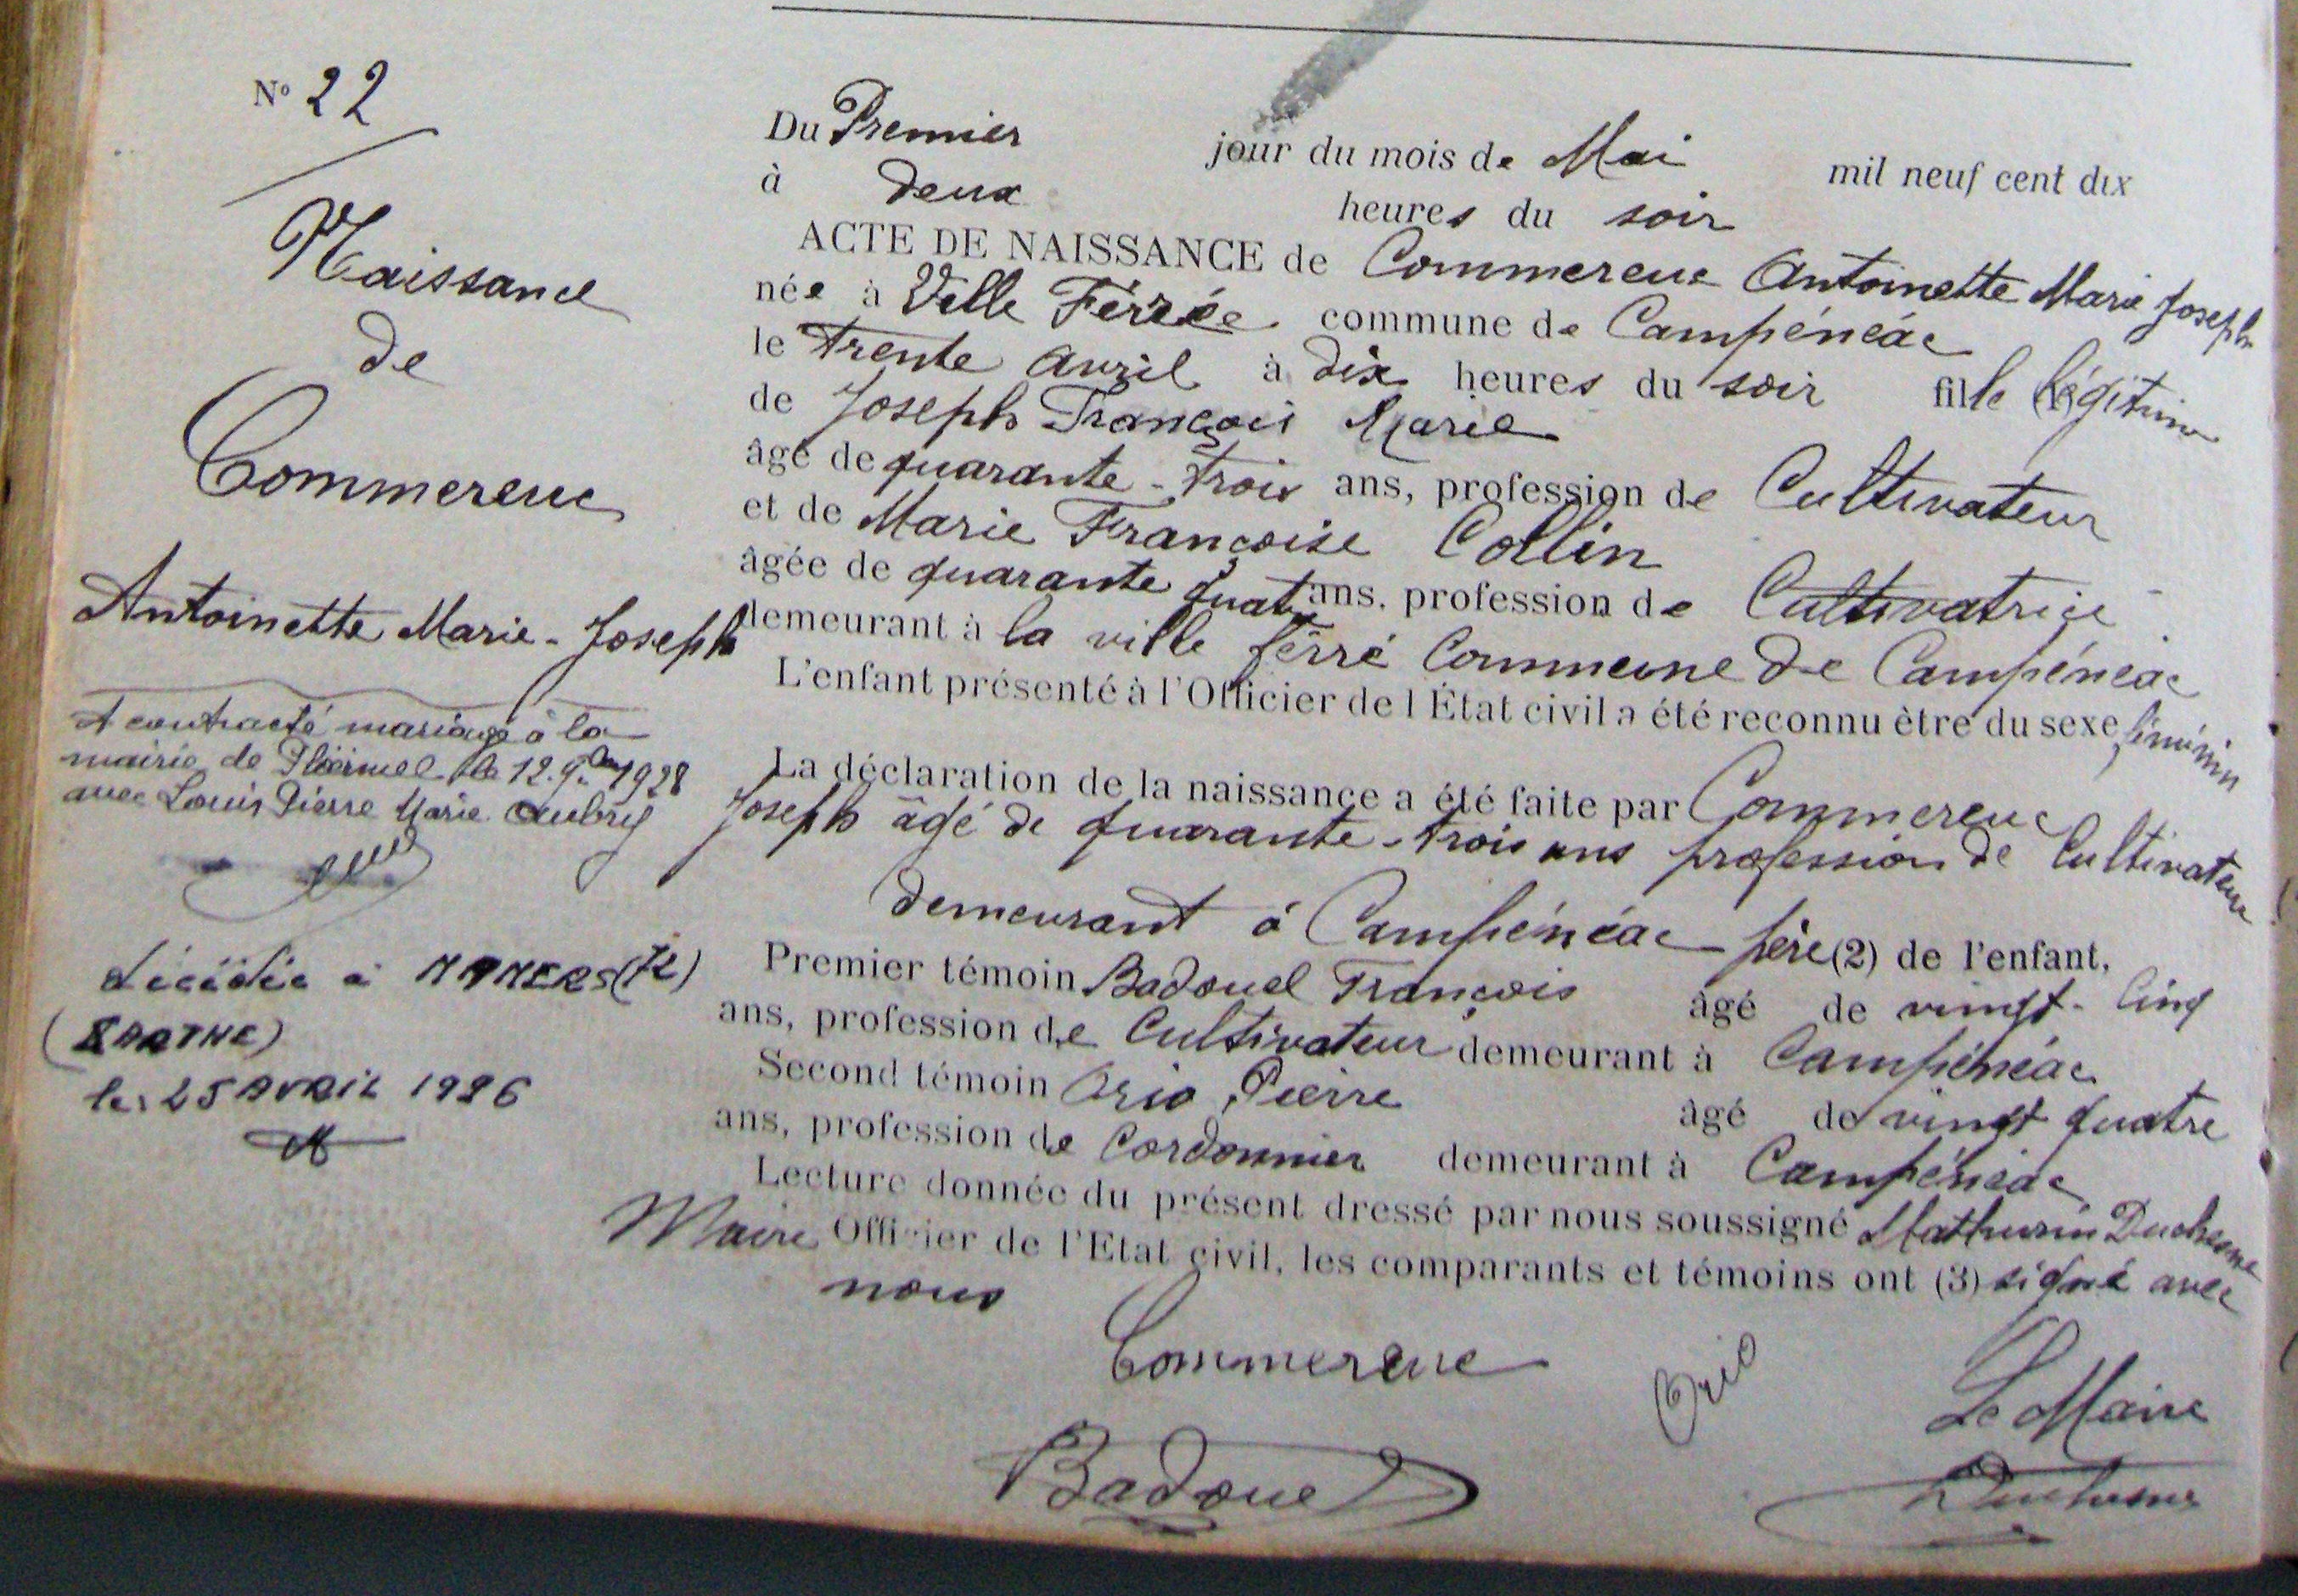 N° 22
Naissance
de
Commereuc
Antoinette Marie-Joseph
A contracté mariage à la
mairie de Ploërmel le 12 9bre 1928
avec Louis Pierre Marie Aubry
décédée à MAMERS (72)
(SARTHE)
le 25 AVRIL 1996
Du Premier jour du mois de Mai mil neuf cent dix
à deux heures du soir
ACTE DE NAISSANCE de Commereuc Antoinette Marie Joseph
née à Ville Férrée commune de Campénéac
le trente avril à dix heures du soir fille légitime
de Joseph François Marie
âgé de quarante-trois ans, profession de Cultivateur
et de Marie Françoise Collin
âgée de quarante quatre ans, profession de Cultivatrice
demeurant à la ville férré Commune de Campénéac
L'enfant présenté à l'Officier de l'État civil a été reconnu être du sexe féminin
La déclaration de la naissance a été faite par Commereuc
Joseph âgé de quarante-trois ans profession de Cultivateur
demeurant à Campénéac père (2) de l'enfant,
Premier témoin Badouel François âgé de vingt-cinq
ans, profession de Cultivateur demeurant à Campénéac
Second témoin Orio Pierre âgé de vingt quatre
ans, profession de Cordonnier demeurant à Campénéac
Lecture donnée du présent dressé par nous soussigné Mathurin Duchesne
Maire Officier de l'Etat civil, les comparants et témoins ont (3) signé avec
nous
Commereuc
Orio
Le Maire
Badouel
Duchesne